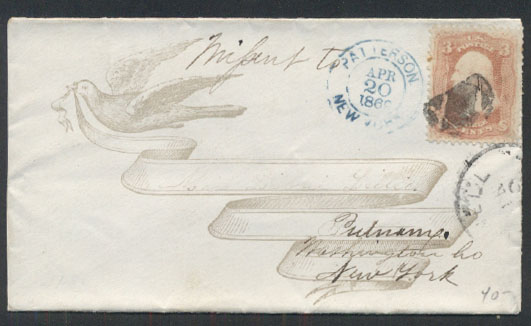 Missent to
PATTERSON
APR
20
186
NEW YORK
U.S. POSTAGE
3 3
CENTS
Putnam.
Washington Co
New York
40-